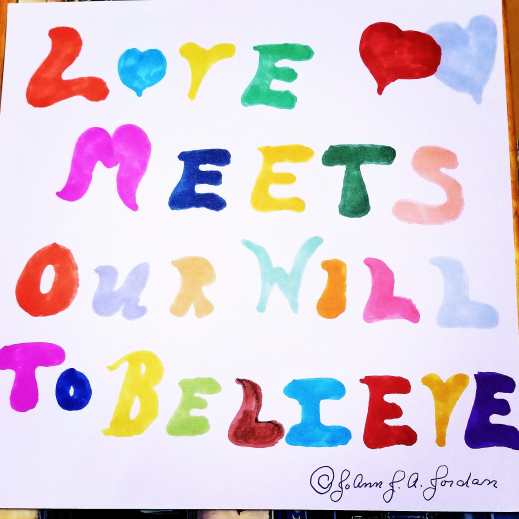 LOVE
MEETS
OUR WILL
TO BELIEVE
© JoAnn J. A. Jordan